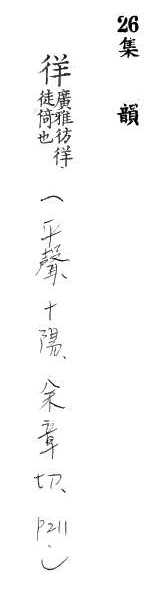 26集韻
徉廣雅彷徉徒倚也(平聲、十陽、余章切、P211.)